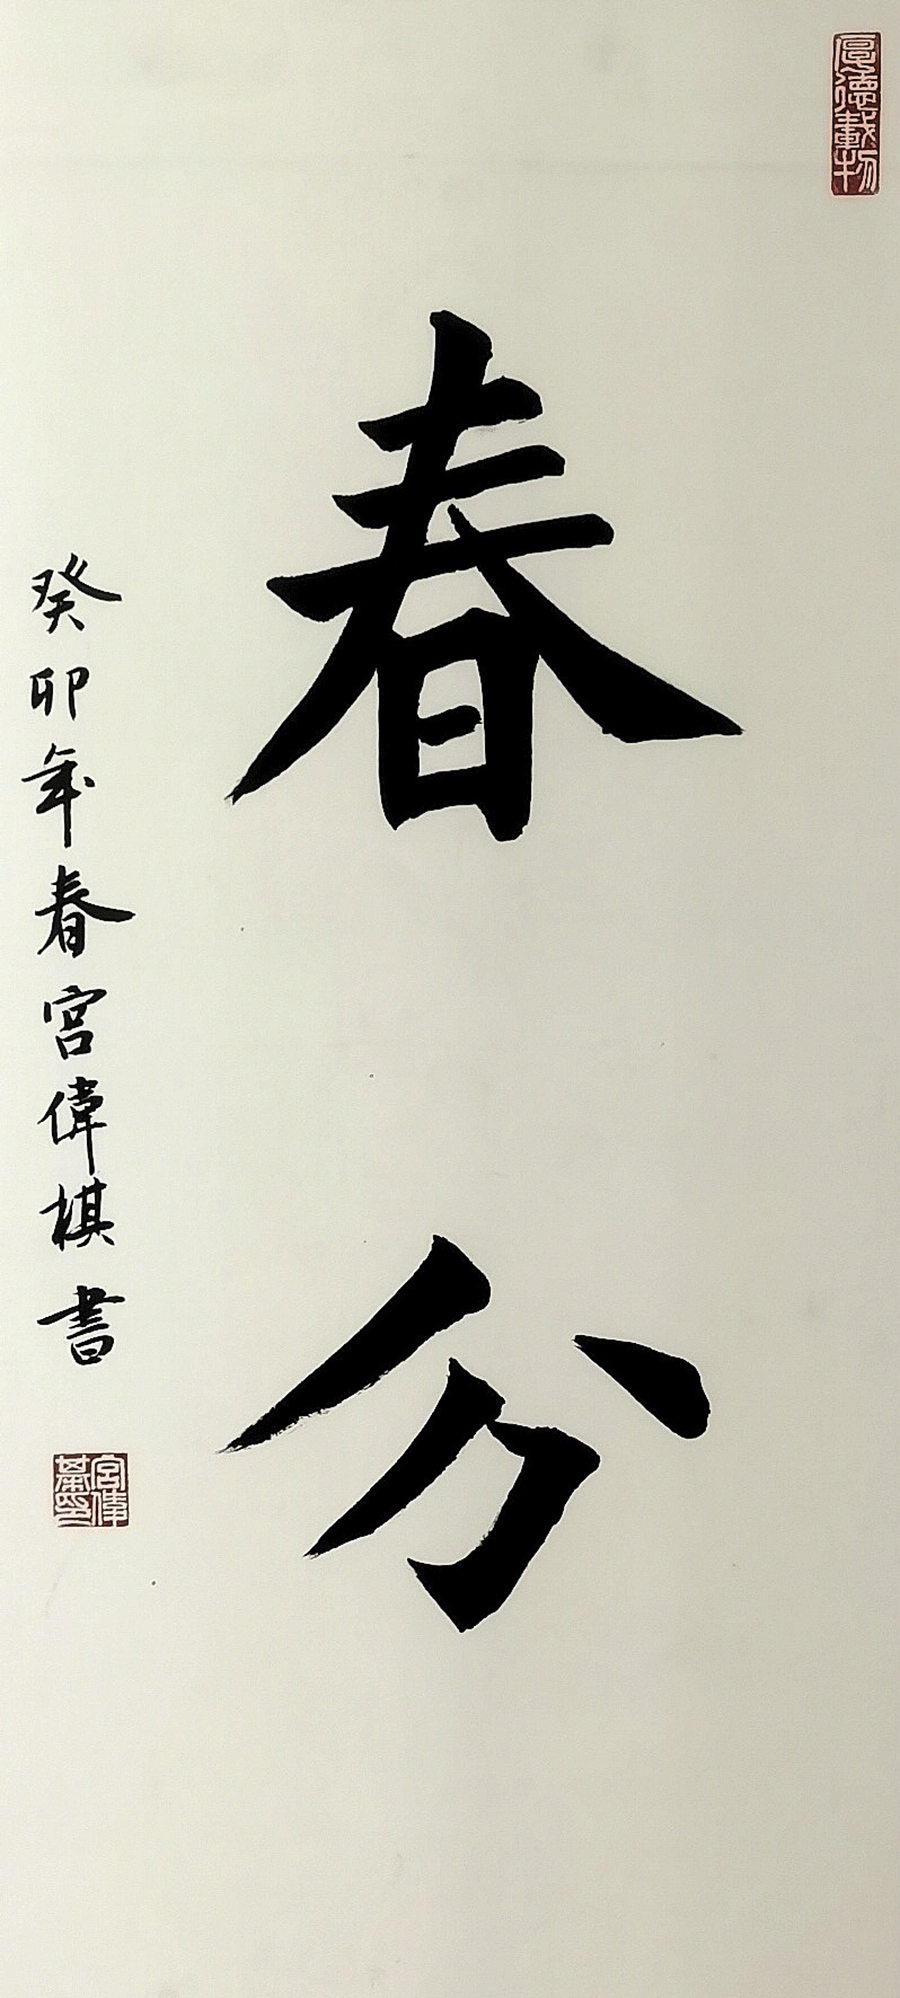 厚德載物
春分
癸卯年春宮偉棋書
宮偉棊印